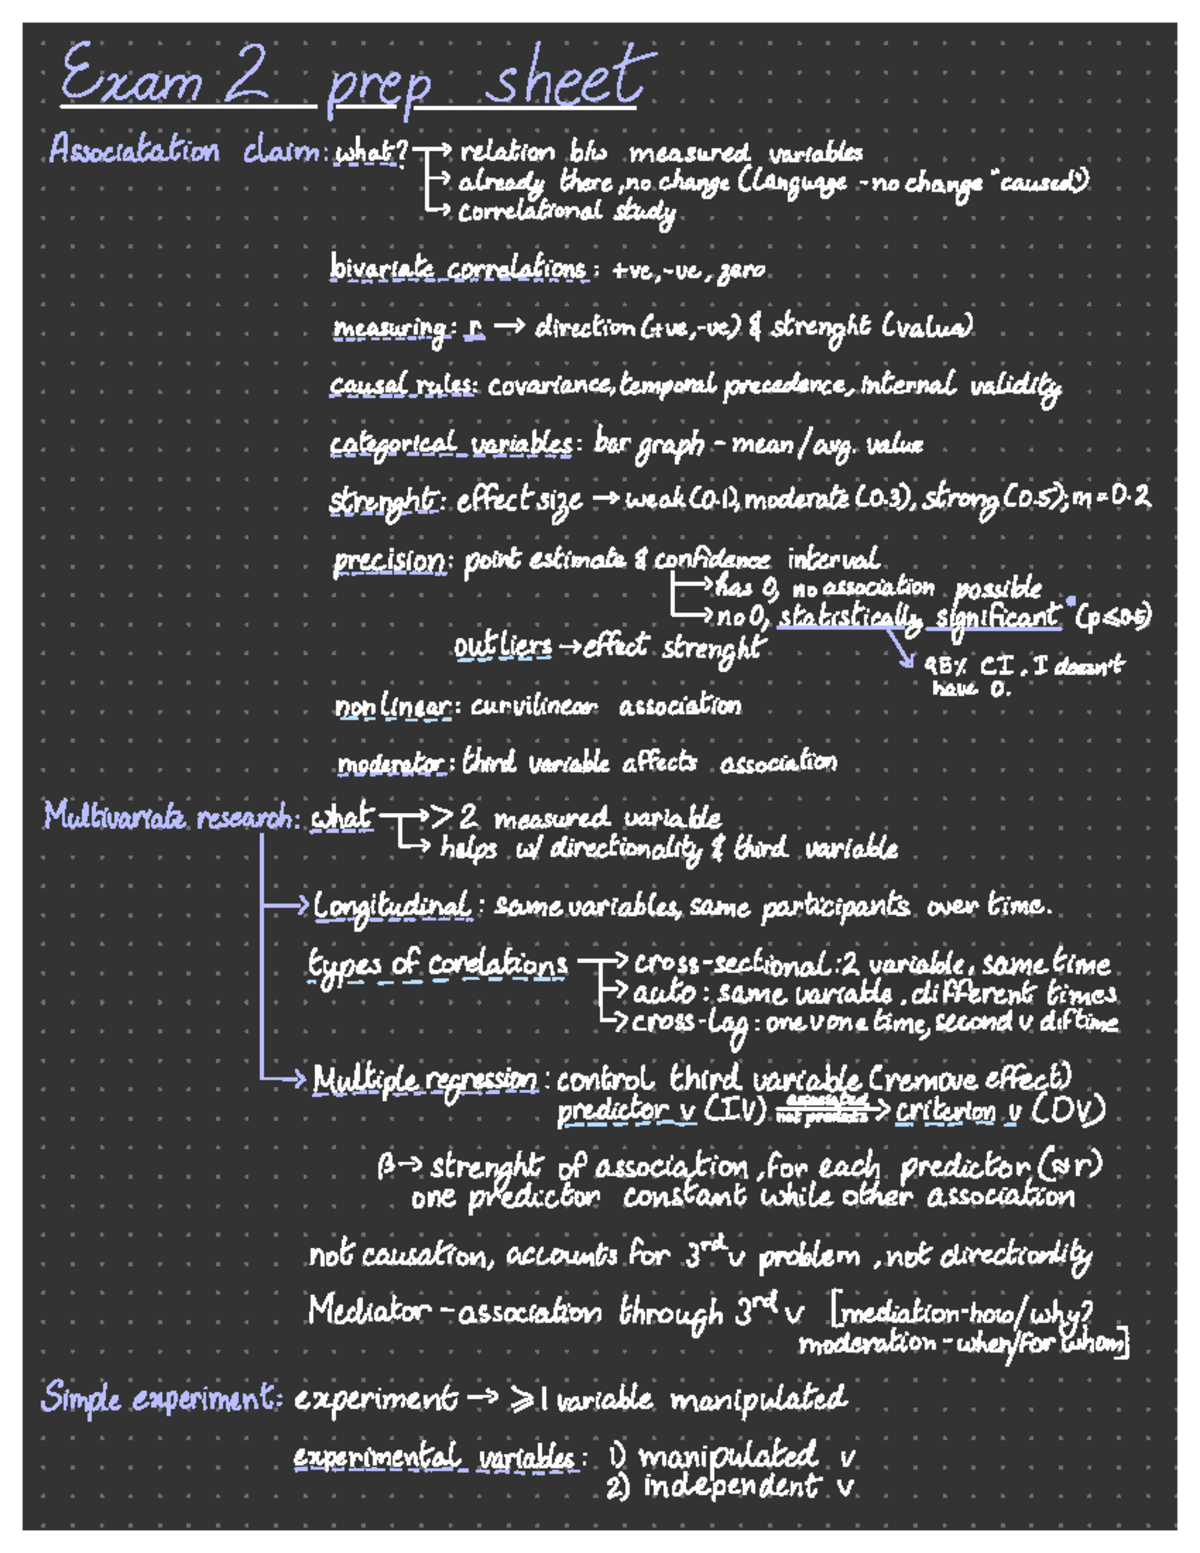 Exam 2 prep sheet
Associatation claim: what? → relation b/w measured variables
→ already there, no change (language - no change "caused")
→ correlational study
bivariate correlations: +ve, -ve, zero
measuring: r → direction (+ve, -ve) & strenght (value)
causal rules: covariance, temporal precedence, internal validity
categorical variables: bar graph - mean/avg. value
strenght: effect size → weak (0.1), moderate (0.3), strong (0.5); m = 0.2
precision: point estimate & confidence interval
→ has 0, no association possible
→ no 0, statistically significant (p ≤ 0.5)
outliers → effect strenght
95% CI, I doesn't
have 0.
non linear: curvilinear association
moderator: third variable affects association
Multivariate research: what → > 2 measured variable
→ helps w/ directionality & third variable
→ Longitudinal: same variables, same participants over time.
types of corelations → cross-sectional: 2 variable, same time
→ auto: same variable, different times
→ cross-lag: one v one time, second v dif time
→ Multiple regression: control third variable (remove effect)
predictor v (IV) associated not predicts → criterion v (DV)
β → strenght of association, for each predictor (≈ r)
one predictor constant while other association
not causation, accounts for 3rd v problem, not directionlity
Mediator - association through 3rd v [mediation-how/why?
moderation - when/for whom]
Simple experiment: experiment → ≥ 1 variable manipulated
experimental variables: 1) manipulated v
2) independent v